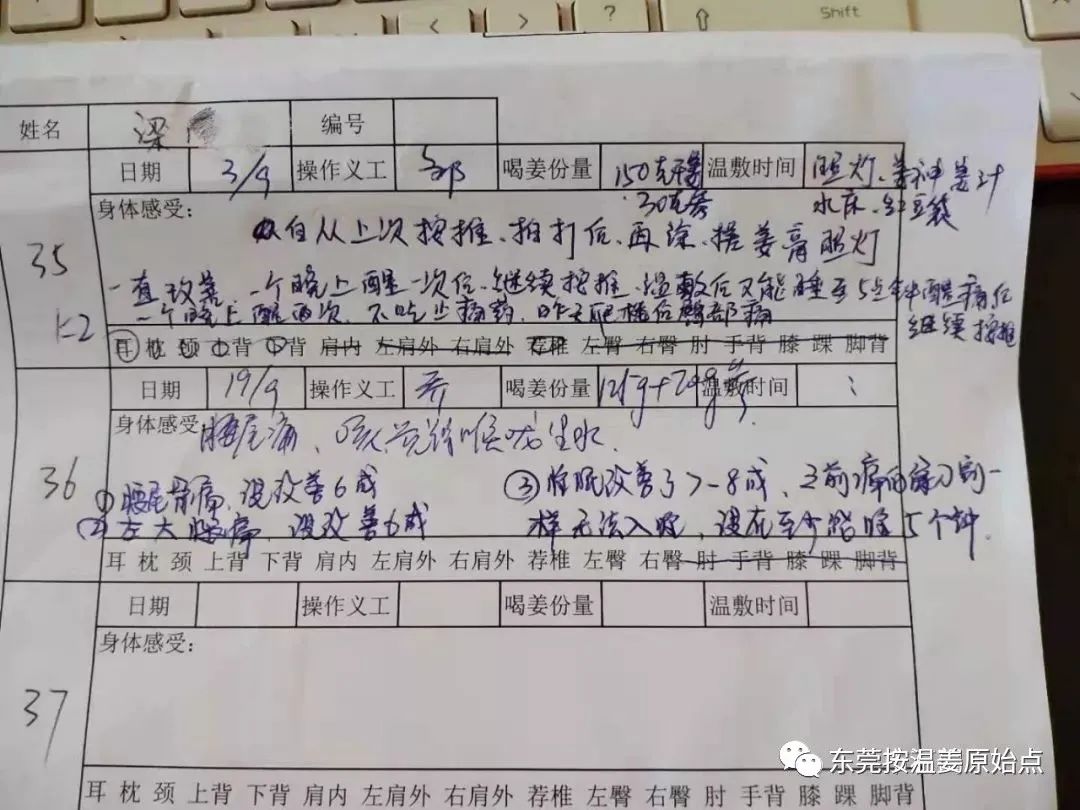 Shift
?
姓名 梁 编号
日期 3/9 操作义工 喝姜份量 150克干姜 温敷时间 照灯、姜神姜汁
30克参 水床、红豆袋
身体感受:
自从上次按推、拍打后、再涂、搓姜膏照灯
35
一直改善、一个晚上醒一次后、继续按推、温敷后又能睡至5点半醒痛后
一个晚上醒两次、不吃止痛药、昨天爬楼后臀部痛 继续按推
耳 枕 颈 上背 下背 肩内 左肩外 右肩外 荐椎 左臀 右臀 肘 手背 膝 踝 脚背
日期 19/9 操作义工 喝姜份量 温敷时间
身体感受
腰尾痛、喉咙生水
36
① 腰尾骨痛、没改善6成 ③ 睡眠改善了7-8成、之前痛的
② 左大腿痛、没改善6成 样无法入眠, 没在至少能睡5个钟.
耳 枕 颈 上背 下背 肩内 左肩外 右肩外 荐椎 左臀 右臀 肘 手背 膝 踝 脚背
日期 操作义工 喝姜份量 温敷时间
身体感受:
37
耳 枕 颈 上背 下背 肩内 左肩外 右肩外 荐椎 左臀 右臀 肘 手背 膝 踝 脚背
东莞按温姜原始点